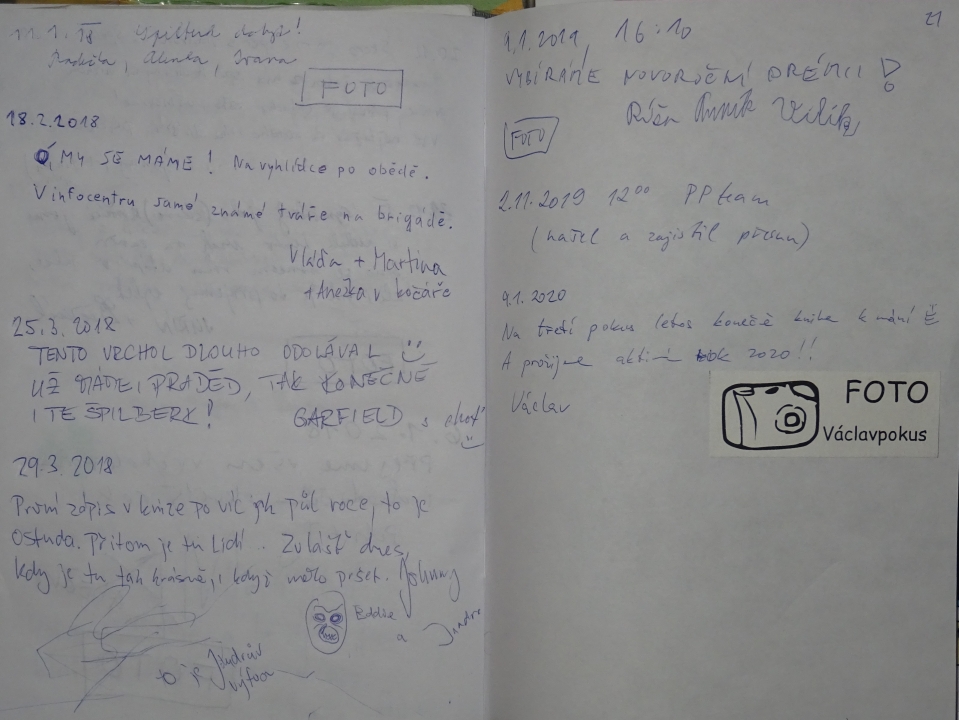 11.1.18 Špilberk dobyt!
Radka, Alenka, Ivana
FOTO
18.2.2018
MY SE MÁME! Na vyhlídce po obědě.
V infocentru samé známé tváře na brigádě.
Vláďa + Martina
+ Anežka v kočáře
25.3.2018
TENTO VRCHOL DLOUHO ODOLÁVAL
UŽ MÁME I PRADĚD, TAK KONEČNĚ
I TE ŠPILBERK!
GARFIELD s choť
29.3.2018
První zápis v knize po víc jak půl roce, to je
ostuda. Přitom je tu lidí.. Zvlášť dnes,
kdy je tu tak krásně, i když mělo pršet. Johnny
Eddie
a Jindra
21
1.1.2019, 16:10
VYBÍRÁME NOVOROČNÍ PRÉMII!
FOTO
2.11.2019 12⁰⁰ PP team
(našel a zajistil přesun)
9.1.2020
Na třetí pokus letos konečně kniha k mání
A prožijme aktivní rok 2020!!
Václav
FOTO
Václavpokus